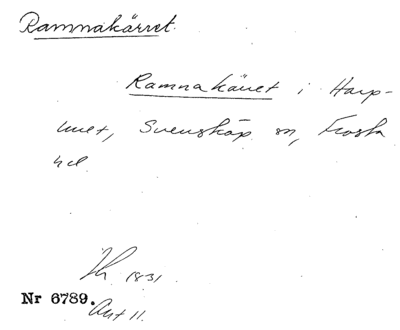 Ramnakärret.
Ramnakärret i Harp-
met, Svensköp sn, Frosta
hd
1831
Nr 6789.
Art 11.